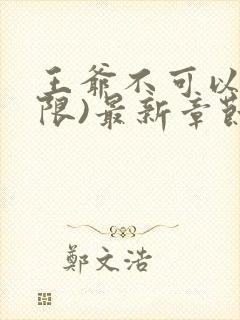 王爷不可以
限)最新章节
鄭文浩